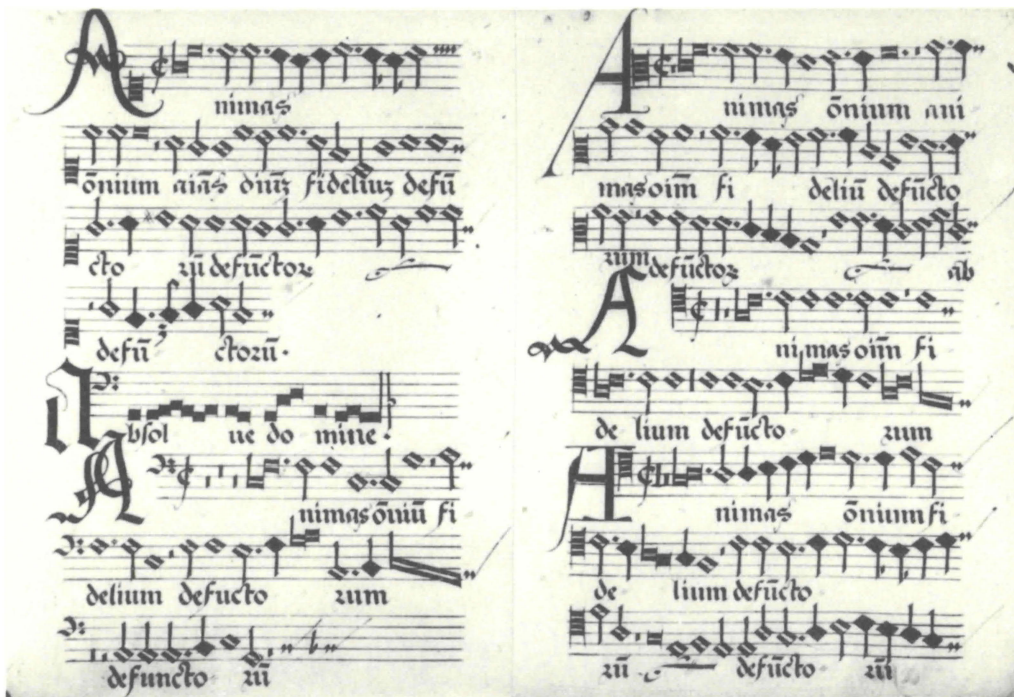 Animas
õnium aiãs oiuʒ fideliuʒ defũ
cto rũ defũctoꝝ
defũ ctorũ.
Absol ue do mine.
Animas õniũ fi
delium defucto rum
defuncto rũ
Animas õnium ani
mas oim̃ fi deliũ defũcto
rum defũctoꝝ ab
Animas oim̃ fi
de lium defũcto rum
Animas õnium fi
de lium defũcto
rũ defũcto rũ